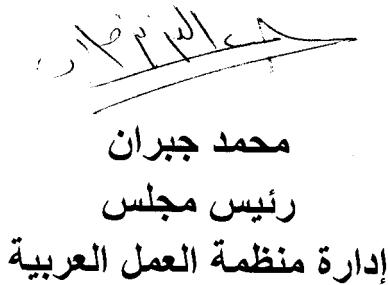 محمد جبران
رئيس مجلس
إدارة منظمة العمل العربية